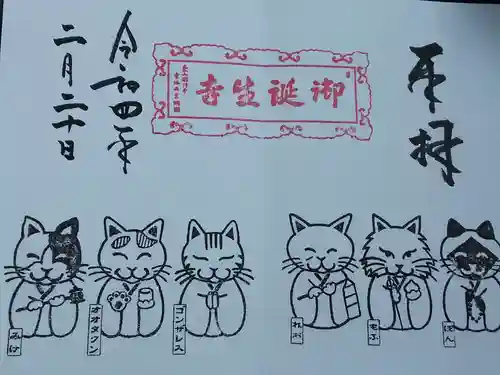 奉拝
御誕生寺
令和四年
二月二十日
みけ
オオタクン
コンザレス
れお
もふ
ぽん